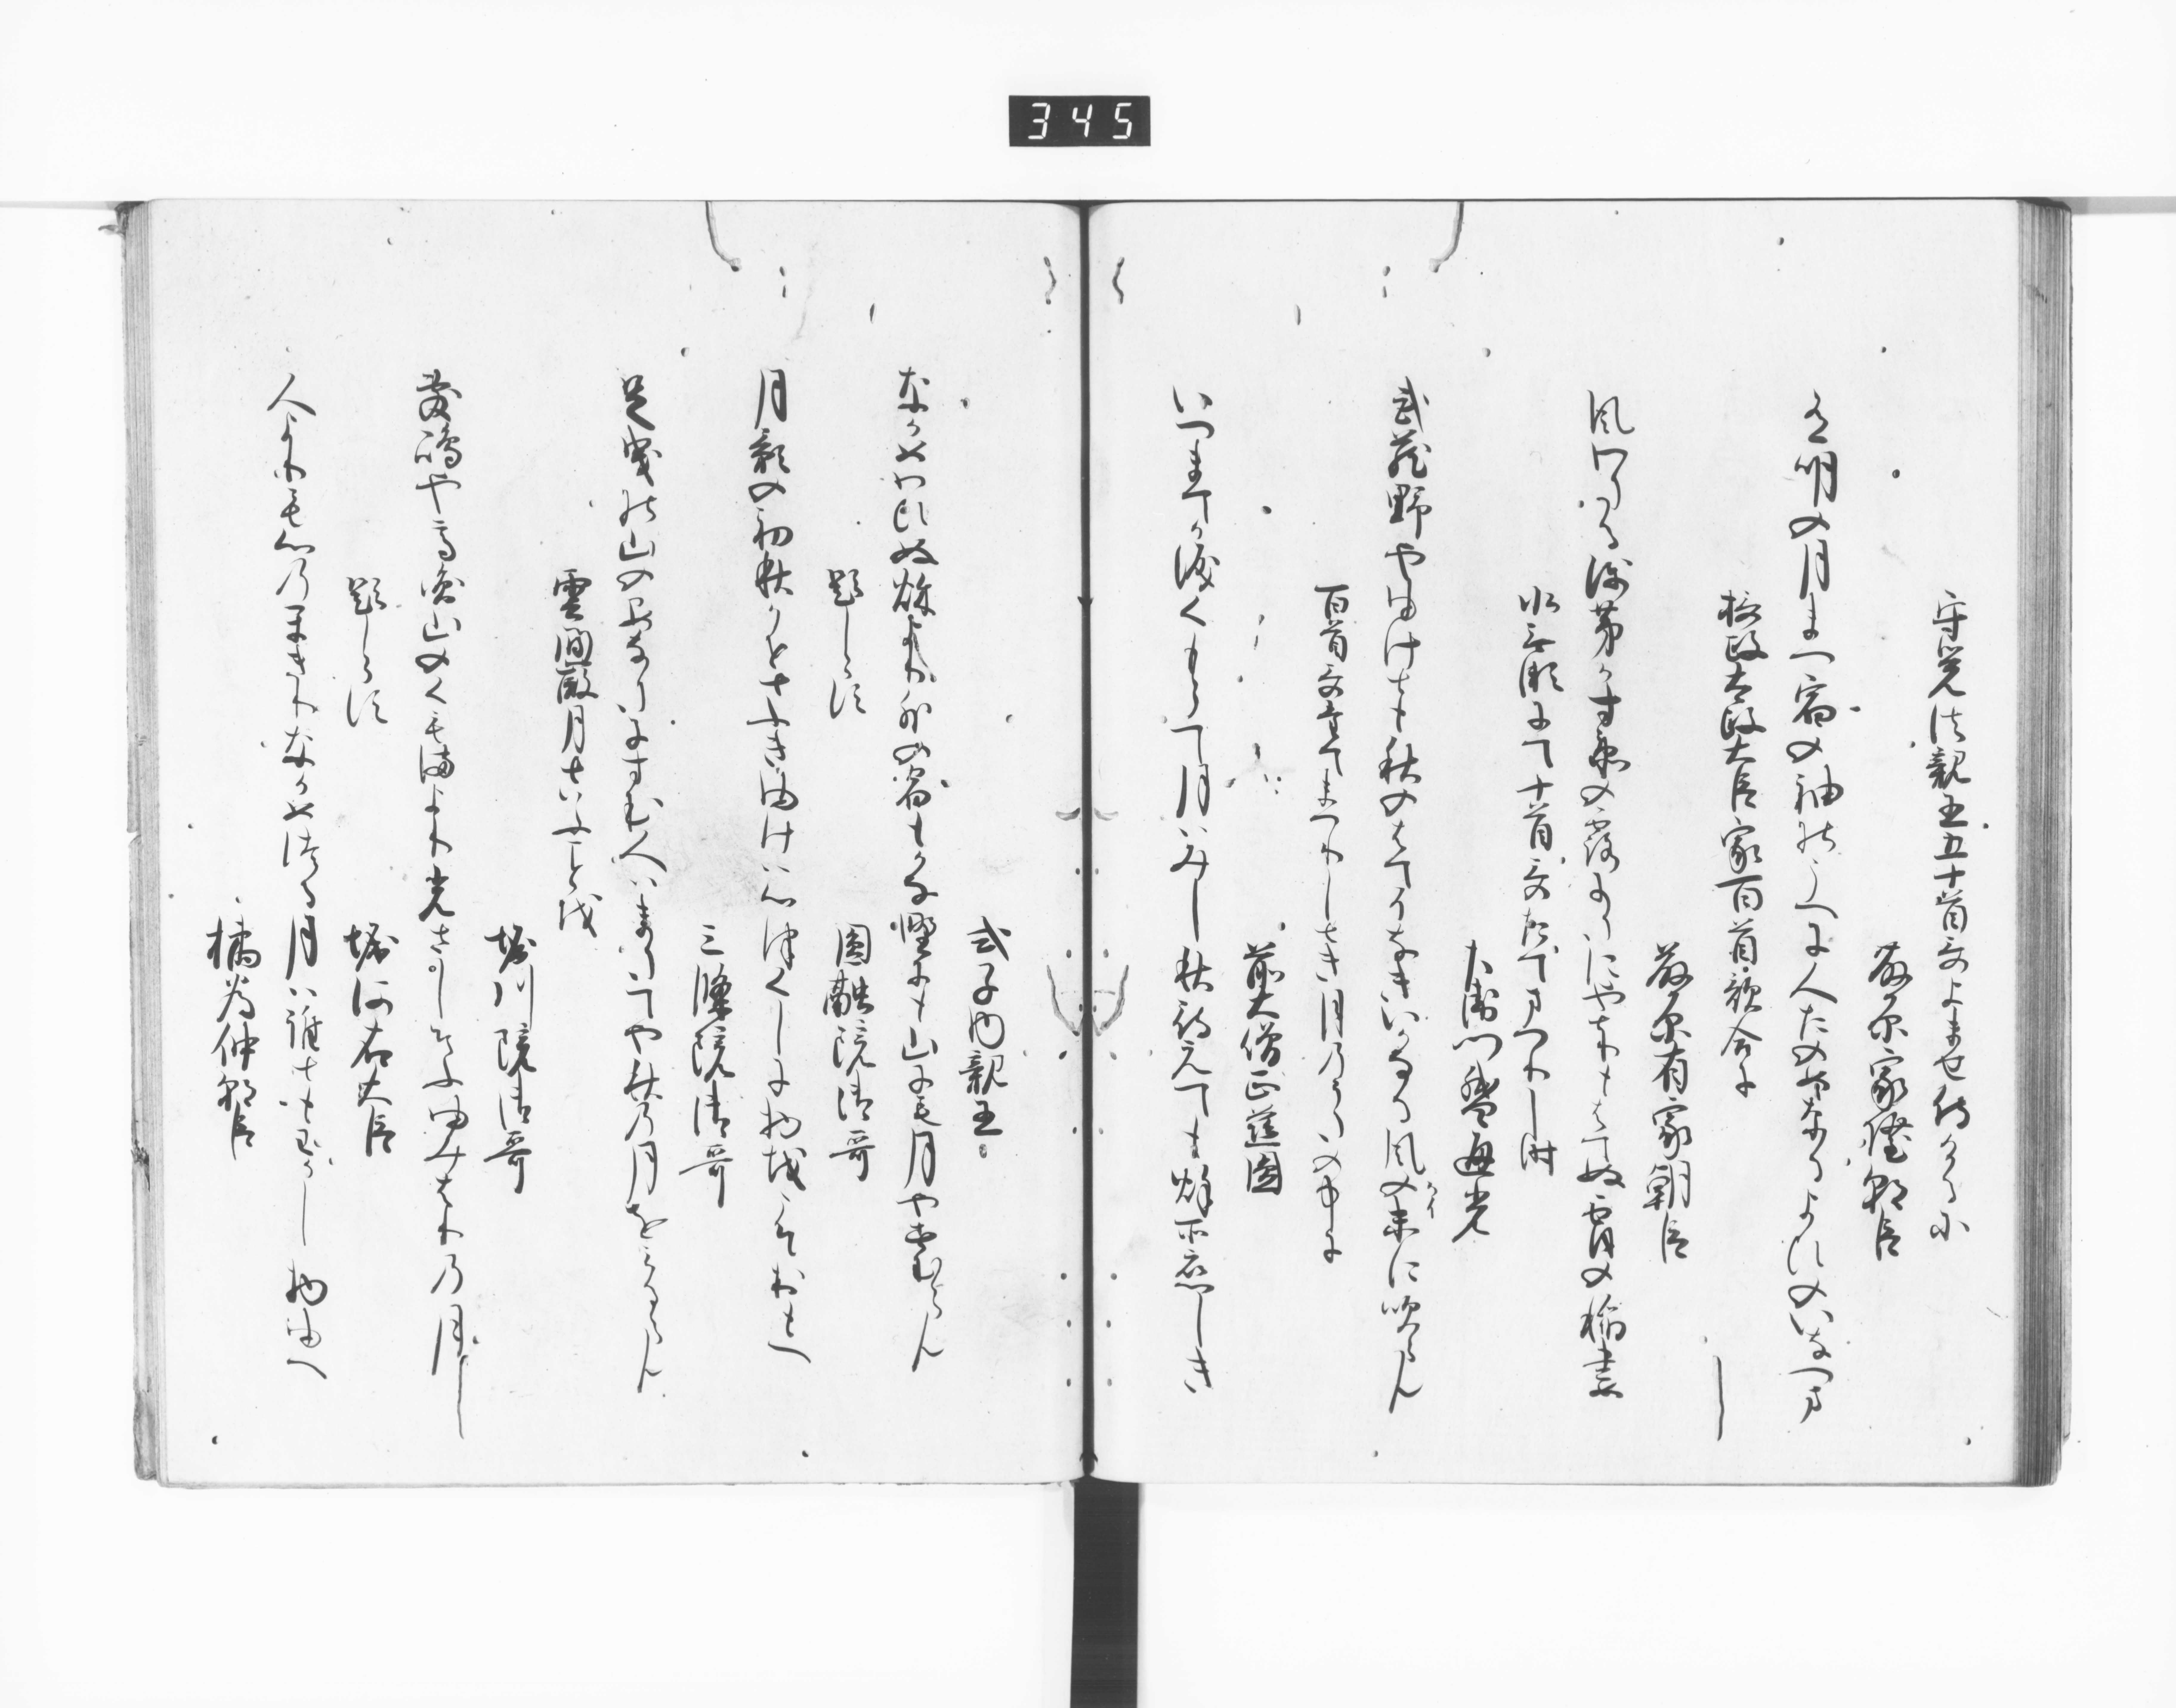 345
守覚法親王五十首哥よませ侍けるに
藤原家隆朝臣
有明の月まつ宿の袖のうへに人たのめなるよひのいなつま
摂政太政大臣家百首歌合に
藤原有家朝臣
風わたる浅茅かすゑの露にたにやとりもはてぬ宵の稲妻
水無瀬にて十首哥たてまつりし時
左衛門督通光
武蔵野やゆけとも秋のはてそなきいかなる風の末に吹らん
百首哥奉てまつりしとき月のうたの中に
前大僧正慈圓
いつまてか涙くもらて月はみし秋待えても秌そ恋しき
式子内親王
なかめわひぬ秌より外の宿もかな野にも山にも月やすむらん
題しらす
圓融院御哥
月影の初秋かせとふけゆけは心つくしに物をこそおもへ
三條院御哥
足曳の山のあなたにすむ人はまたてや秋の月をみるらん
雲間微月といふことを
堀川院御哥
敷嶋や高圓山のくもまより光さしそふゆみはりの月
題しらす
堀河右大臣
人よりも心のかきりなかめつる月は誰ともわかし物ゆへ
橘為仲朝臣